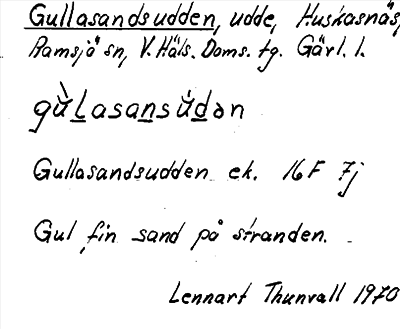 Gullasandsudden, udde, Huskasnäs,
Ramsjö sn, V. Häls. Doms. tg. Gävl. l.
gùLasansùdən
Gullasandsudden ek. 16F 7j
Gul, fin sand på stranden.
Lennart Thunvall 1970